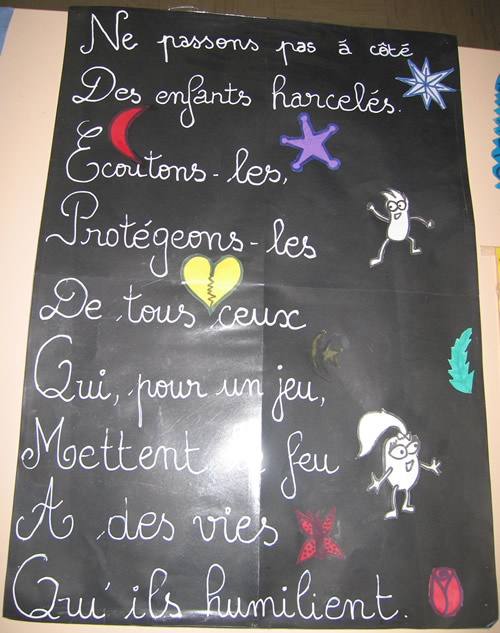 Ne passons pas á côté
Des enfants harcelés.
Ecoutons-les,
Protégeons-les
De tous ceux
Qui, pour un jeu,
Mettent feu
A des vies
Qu'ils humilient.